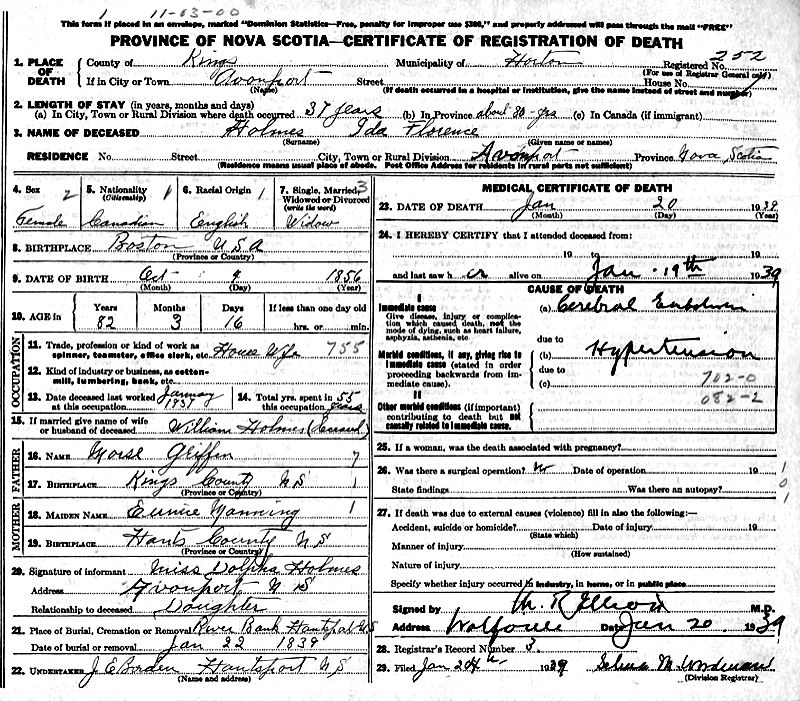 1 11-03-00
This form if placed in an envelope, marked "Dominion Statistics—Free, penalty for improper use $300," and properly addressed will pass through the mail "FREE"
PROVINCE OF NOVA SCOTIA—CERTIFICATE OF REGISTRATION OF DEATH
1. PLACE OF DEATH County of Kings Municipality of Horton Registered No. 252
(For use of Registrar General only)
If in City or Town Avonport Street House No.
(Name) (If death occurred in a hospital or institution, give the name instead of street and number)
2. LENGTH OF STAY (in years, months and days)
(a) In City, Town or Rural Division where death occurred 37 years (b) In Province about 80 yrs (c) In Canada (if immigrant)
3. NAME OF DECEASED Holmes Ida Florence
(Surname) (Given name or names)
RESIDENCE No. Street City, Town or Rural Division Avonport Province Nova Scotia
(Residence means usual place of abode. Post Office Address for residents in rural parts not sufficient)
4. Sex 2 Female
5. Nationality (Citizenship) 1 Canadian
6. Racial Origin 1 English
7. Single, Married, Widowed or Divorced (write the word) 3 Widow
8. BIRTHPLACE Boston U S A
(Province or Country)
9. DATE OF BIRTH Oct 4 1856
(Month) (Day) (Year)
10. AGE in Years Months Days If less than one day old
82 3 16 hrs. or min.
OCCUPATION
11. Trade, profession or kind of work as spinner, teamster, office clerk, etc. House Wife 755
12. Kind of industry or business, as cotton-mill, lumbering, bank, etc.
13. Date deceased last worked at this occupation January 1937
14. Total yrs. spent in this occupation 55 years
15. If married give name of wife or husband of deceased William Holmes (deceased)
FATHER
16. NAME Morse Griffin 7
17. BIRTHPLACE Kings County N S 1
(Province or Country)
MOTHER
18. MAIDEN NAME Eunice Manning 1
19. BIRTHPLACE Hants County N S
(Province or Country)
20. Signature of informant Miss Dolpha Holmes
Address Avonport N S
Relationship to deceased Daughter
21. Place of Burial, Cremation or Removal River Bank Hantsport N S
Date of burial or removal Jan 22 1939
22. UNDERTAKER J E Borden Hantsport N S
(Name and address)
MEDICAL CERTIFICATE OF DEATH
23. DATE OF DEATH Jan 20 1939
(Month) (Day) (Year)
24. I HEREBY CERTIFY that I attended deceased from:
19 to 19
and last saw h er alive on Jan. 19th 1939
CAUSE OF DEATH
I
Immediate cause (a) Cerebral Embolism
Give disease, injury or complication which caused death, not the mode of dying, such as heart failure, asphyxia, asthenia, etc.
due to
Morbid conditions, if any, giving rise to immediate cause (stated in order proceeding backwards from immediate cause). (b) Hypertension
due to
(c) 702-0
082-2
II
Other morbid conditions (if important) contributing to death but not causally related to immediate cause.
25. If a woman, was the death associated with pregnancy?
26. Was there a surgical operation? No Date of operation 19 1
State findings Was there an autopsy? 0
1
27. If death was due to external causes (violence) fill in also the following:
Accident, suicide or homicide? Date of injury 19
(State which)
Manner of injury
(How sustained)
Nature of injury
Specify whether injury occurred in industry, in home, or in public place
Signed by M.D.
Address Wolfville Date Jan 20 1939
28. Registrar's Record Number 3.
29. Filed Jan 24th 1939
(Division Registrar)